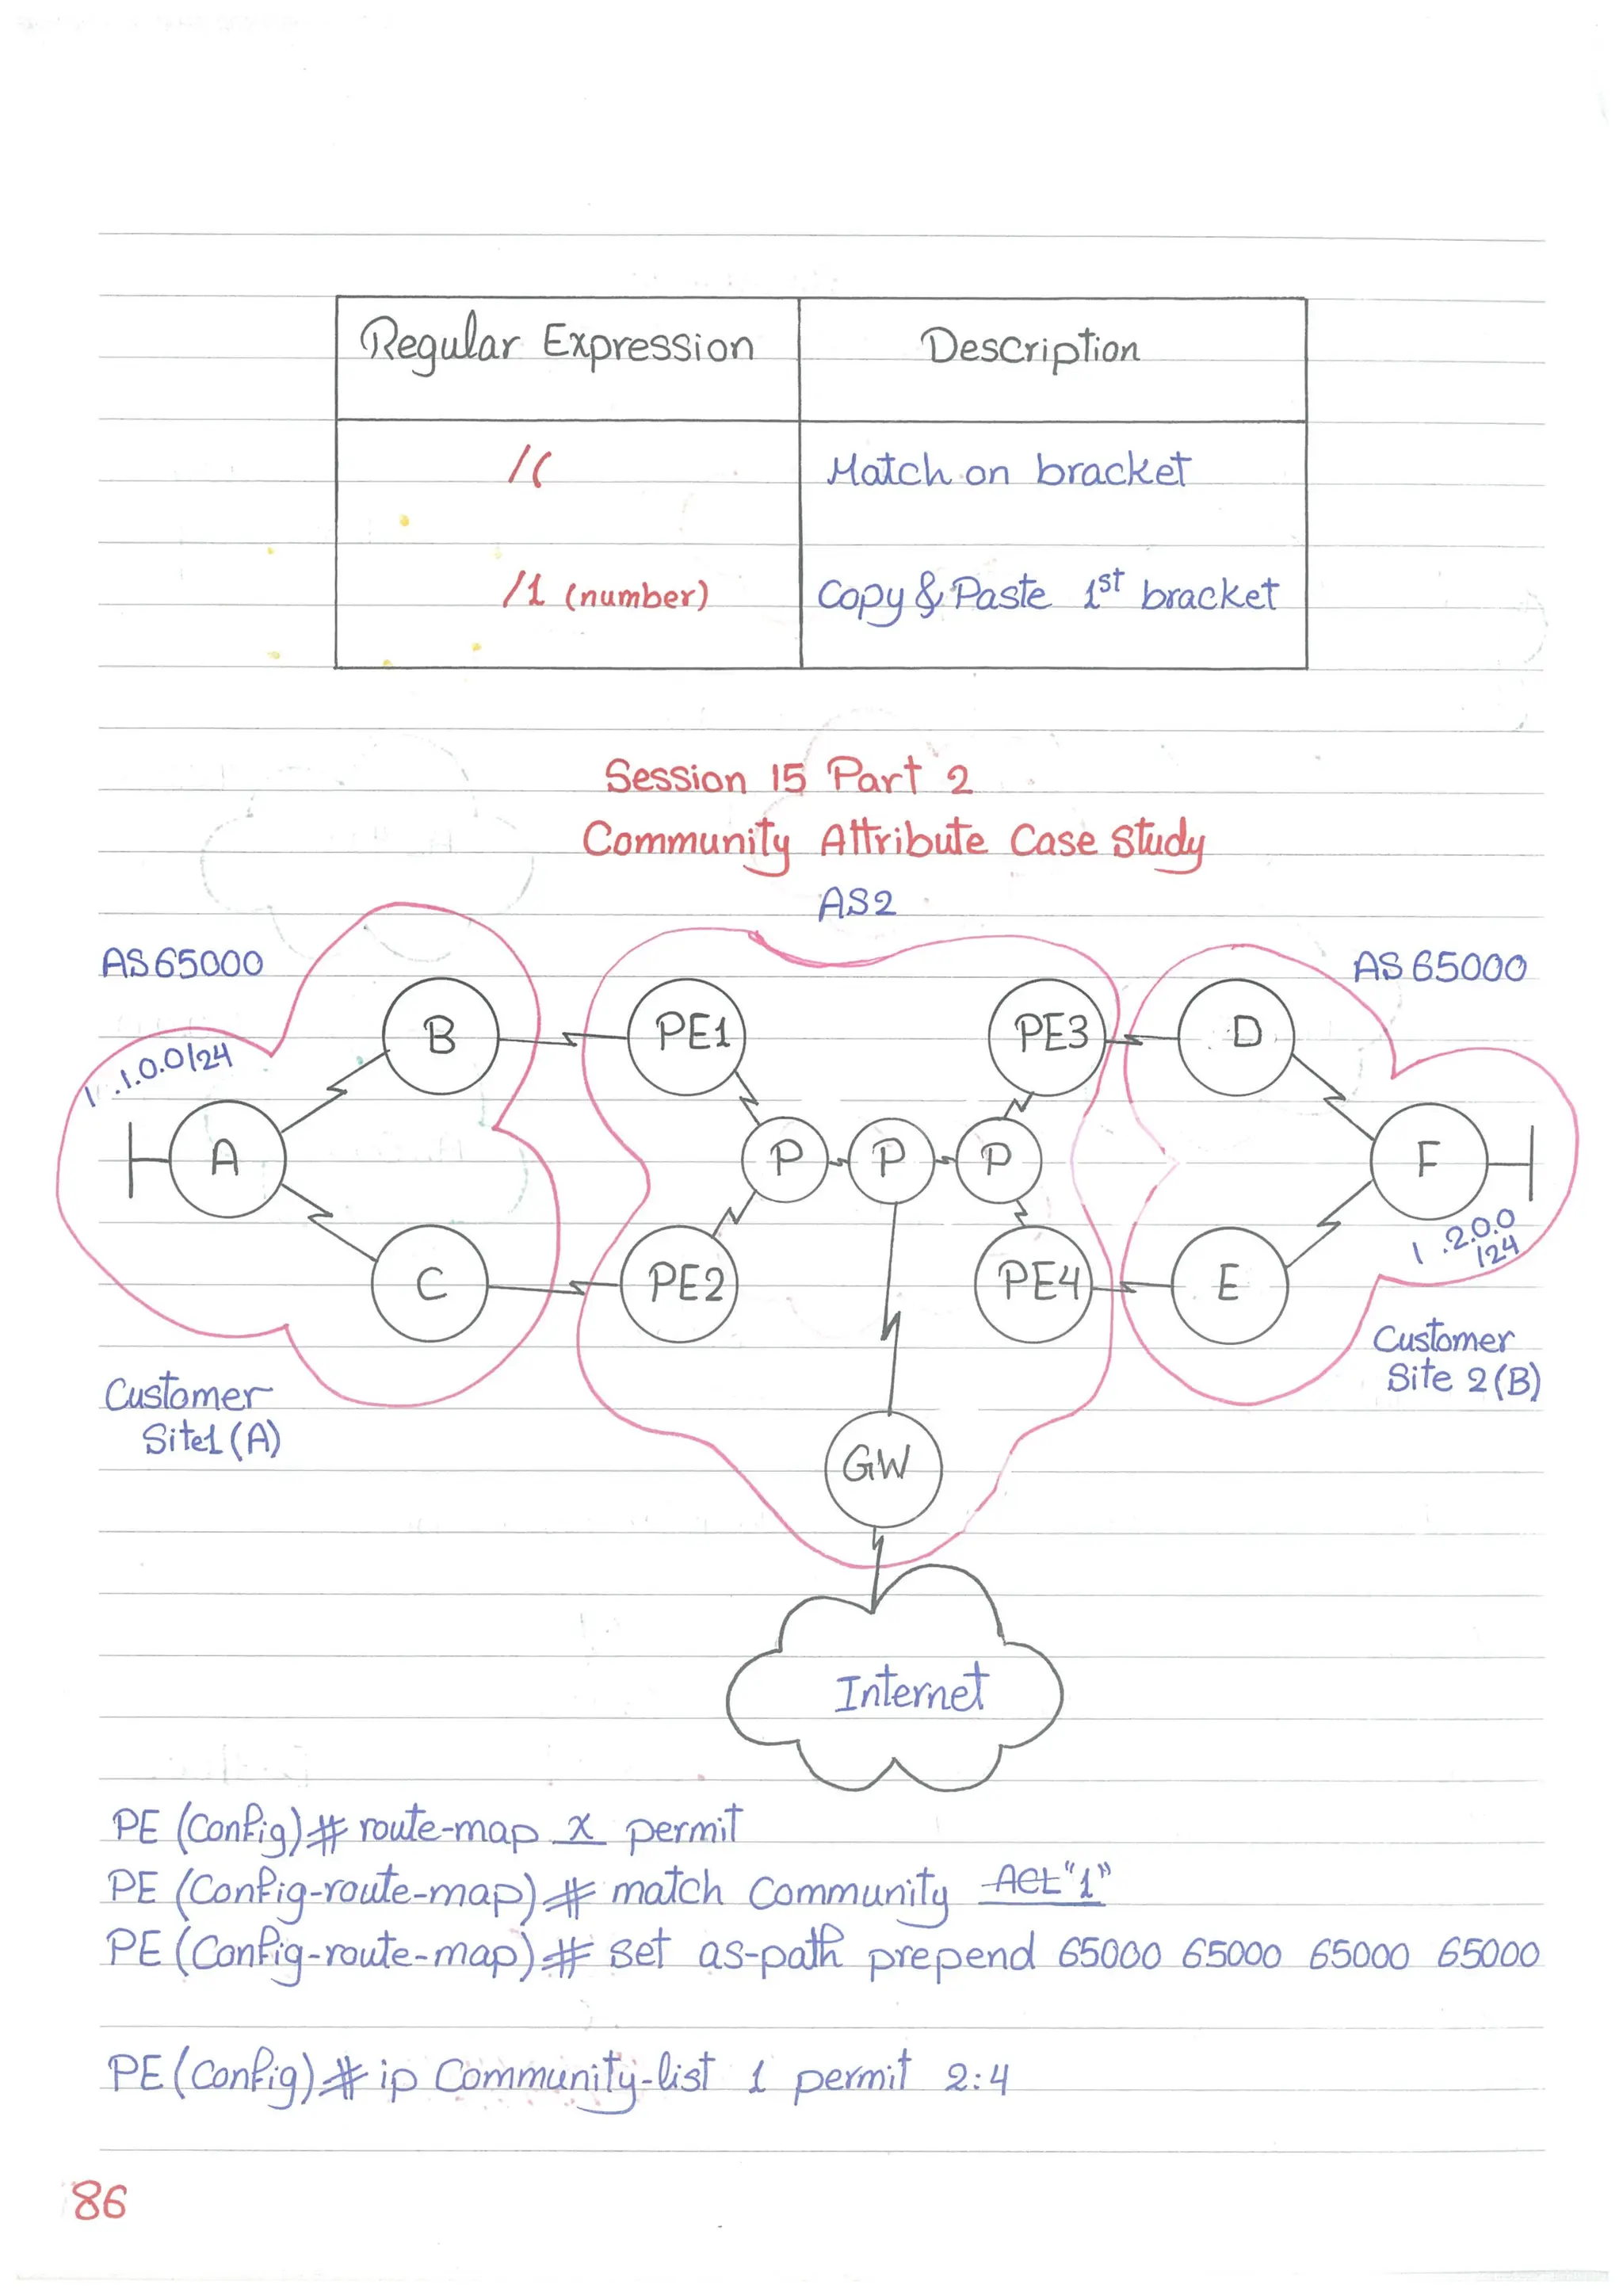 Regular Expression Description
/( Match on bracket
/1 (number) Copy & Paste 1st bracket
Session 15 Part 2
Community Attribute Case Study
AS2
AS 65000 AS 65000
B PE1 PE3 D
1 .1.0.0/24
A P P P F
1 .2.0.0
/24
C PE2 PE4 E
Customer
Site 2 (B)
Customer
Site1 (A)
GW
Internet
PE (Config)# route-map x permit
PE (Config-route-map)# match Community ACL "1"
PE (Config-route-map)# set as-path prepend 65000 65000 65000 65000
PE (Config)# ip Community-list 1 permit 2:4
86